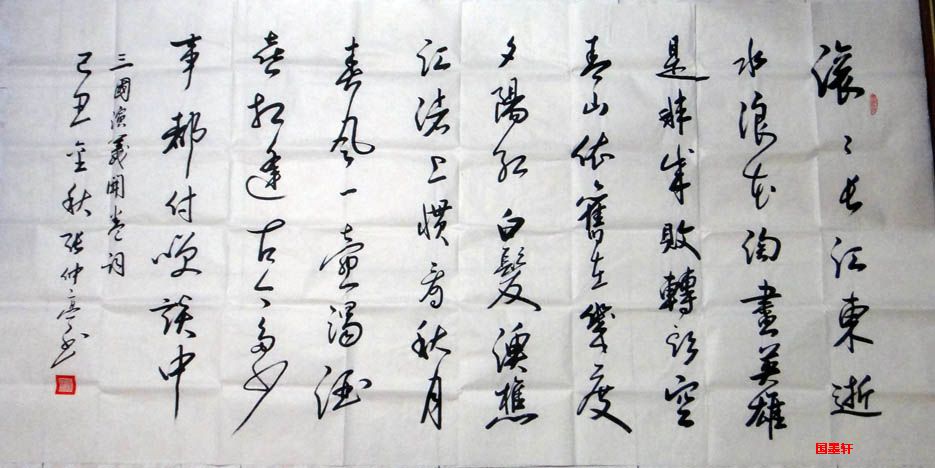 滚滚长江東逝
水浪花淘盡英雄
是非成敗轉頭空
青山依舊在幾度
夕陽红白髮漁樵
江渚上惯看秋月
春风一壶濁酒
喜相逢古今多少
事都付笑談中
三國演義開卷詞
己丑金秋张仲亭书
国墨轩